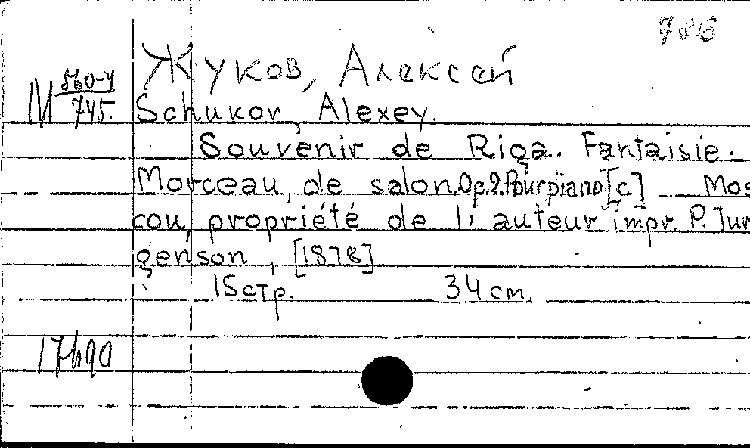 786
Жуков, Алексей
М 560-4
745.
Schukov, Alexey.
Souvenir de Riga. Fantaisie.
Morceau de salon. Op.2. Pour piano [c] Mos
cou, propriété de l'auteur impr. P. Jur
genson, [1878]
15 стр. 34 cm.